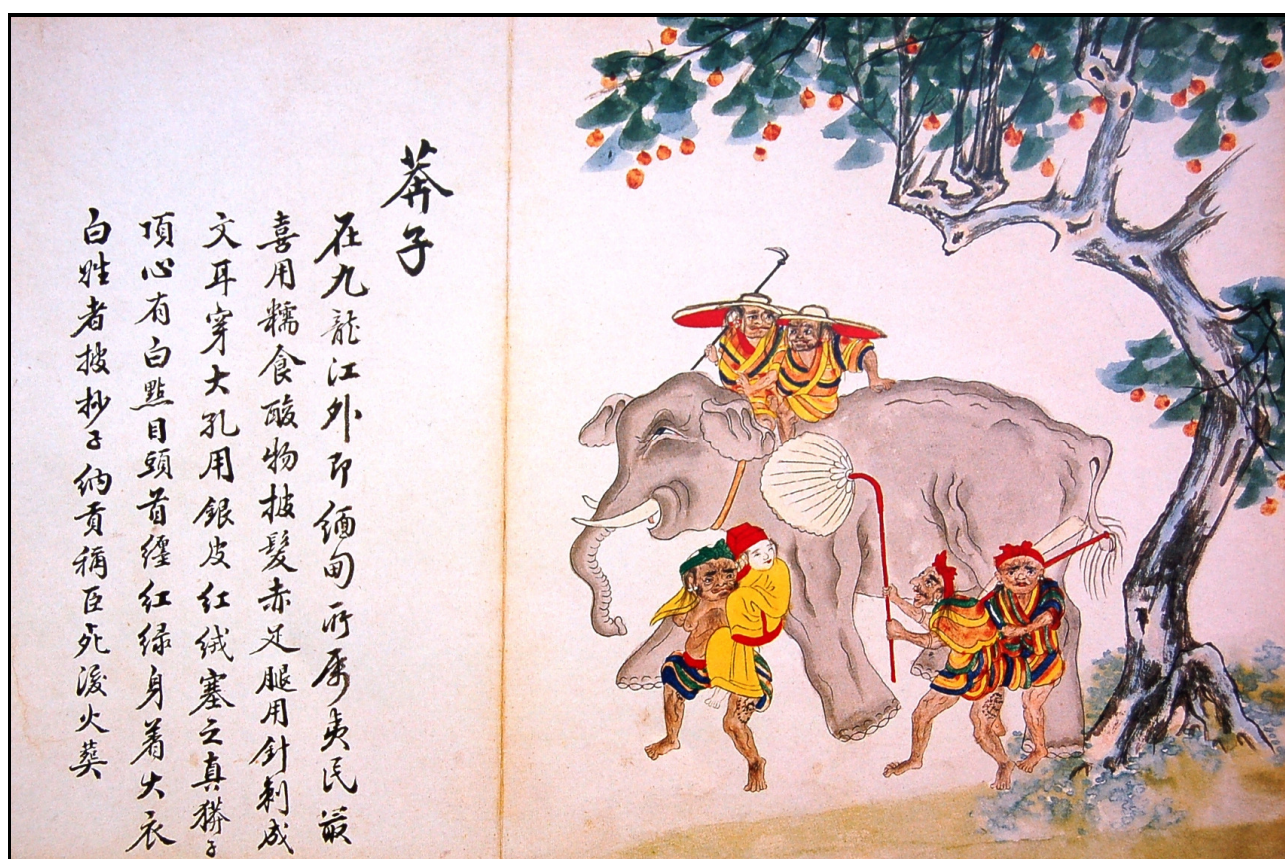 莽子
在九龍江外即緬甸所属夷民最
喜用糯食酸物披髮赤足腿用針刺成
文耳穿大孔用銀皮紅絨塞之真獉子
項心有白點目頭首纏紅緑身着大衣
白姓者披抄子纳貢稱臣死後火葵